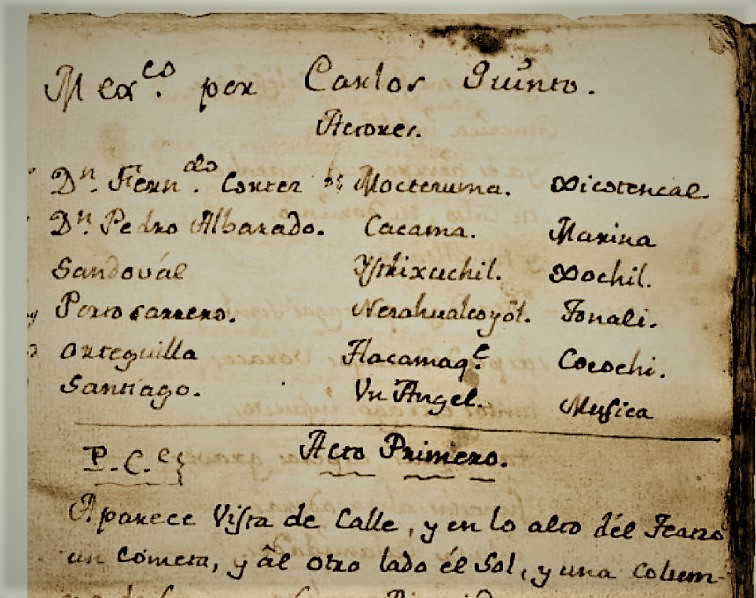 Mex.co por Carlos Quinto.
Actores.
Dn. Fern.do Cortez Moctezuma. Xicotencal
Dn. Pedro Albarado. Cacama. Marina
Sandovál Ystlixuchil. Xochil.
Portocarrero. Nezahualcoyôl. Tonali.
Orteguilla Tlacamaq.e Cocochi.
Santiago. Vn Angel. Musica
Acto Primero.
P. C.es
Aparece Vista de Calle, y en lo alto dél Teatro
un Cometa, y âl otro lado él Sol, y una colum-